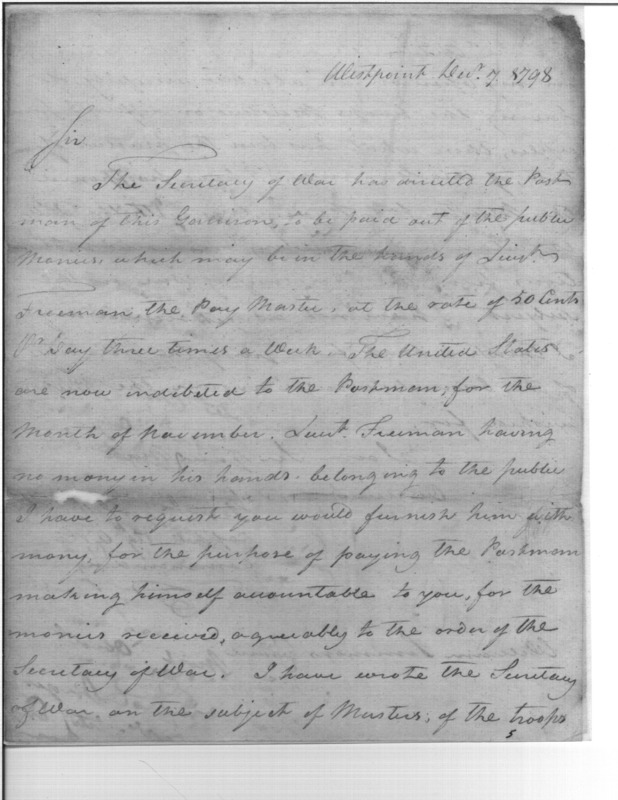 Westpoint Decr. 7. 1798
Sir
The Secretary of War has directed the Post
man of this Garrison, to be paid out of the public
Monies, which may be in the hands of Lieut.
Freeman, the Pay Master, at the rate of 50 Cents
Pr. Day three times a Week. The United States
are now indebted to the Postman, for the
Month of November. Lieut. Freeman having
no mony in his hands belonging to the public
I have to request you would furnish him with
mony, for the purpose of paying the Postman
making himself accountable to you, for the
monies received, agreeably to the order of the
Secretary of War. I have wrote the Secretary
of War on the subject of Musters, of the troops
5